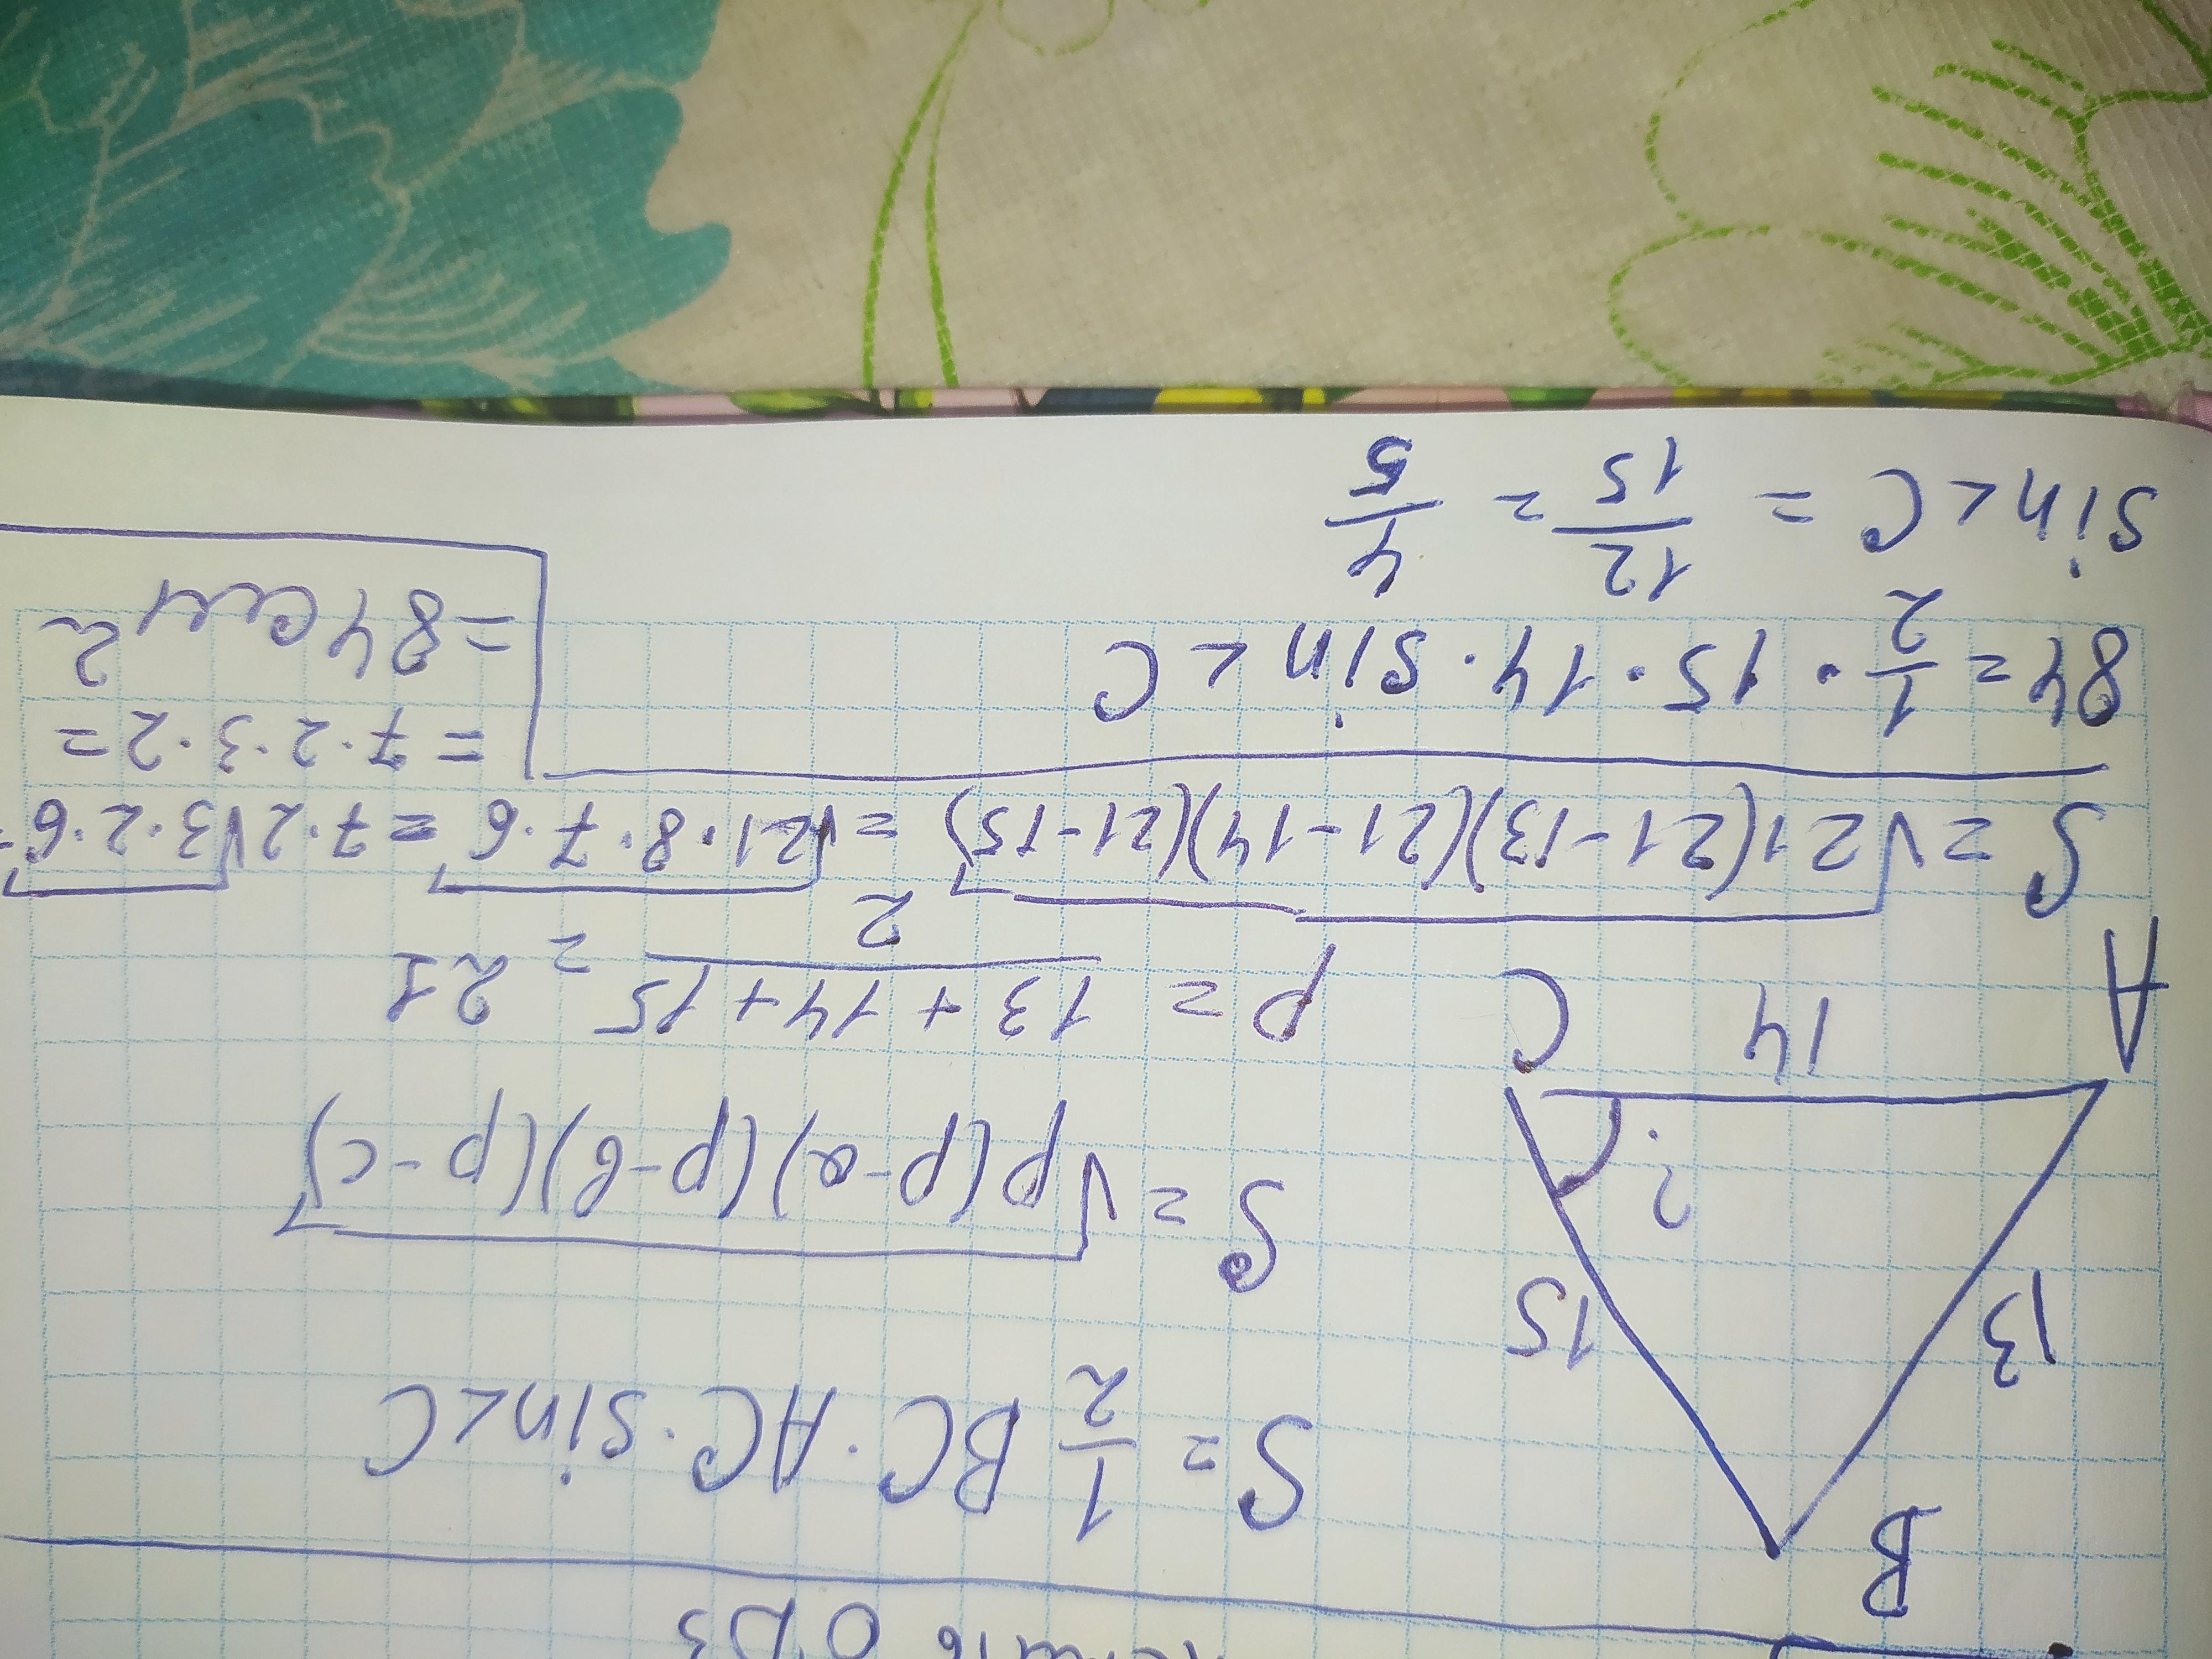 ОДЗ
B
S = 1/2 BC · AC · sin∠C
13
15
?
S = √p(p-a)(p-b)(p-c)
A
14
C
p = (13 + 14 + 15)/2 = 21
S = √21(21-13)(21-14)(21-15) = √21·8·7·6 = 7·2√3·2·6 =
= 7·2·3·2 =
= 84 см²
84 = 1/2 · 15 · 14 · sin∠C
sin∠C = 12/15 = 4/5